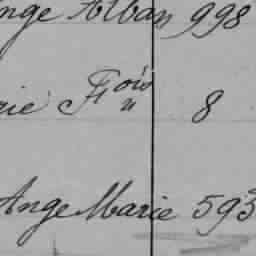 nge Alban 998
rie Fois 8
"
Ange Marie 593